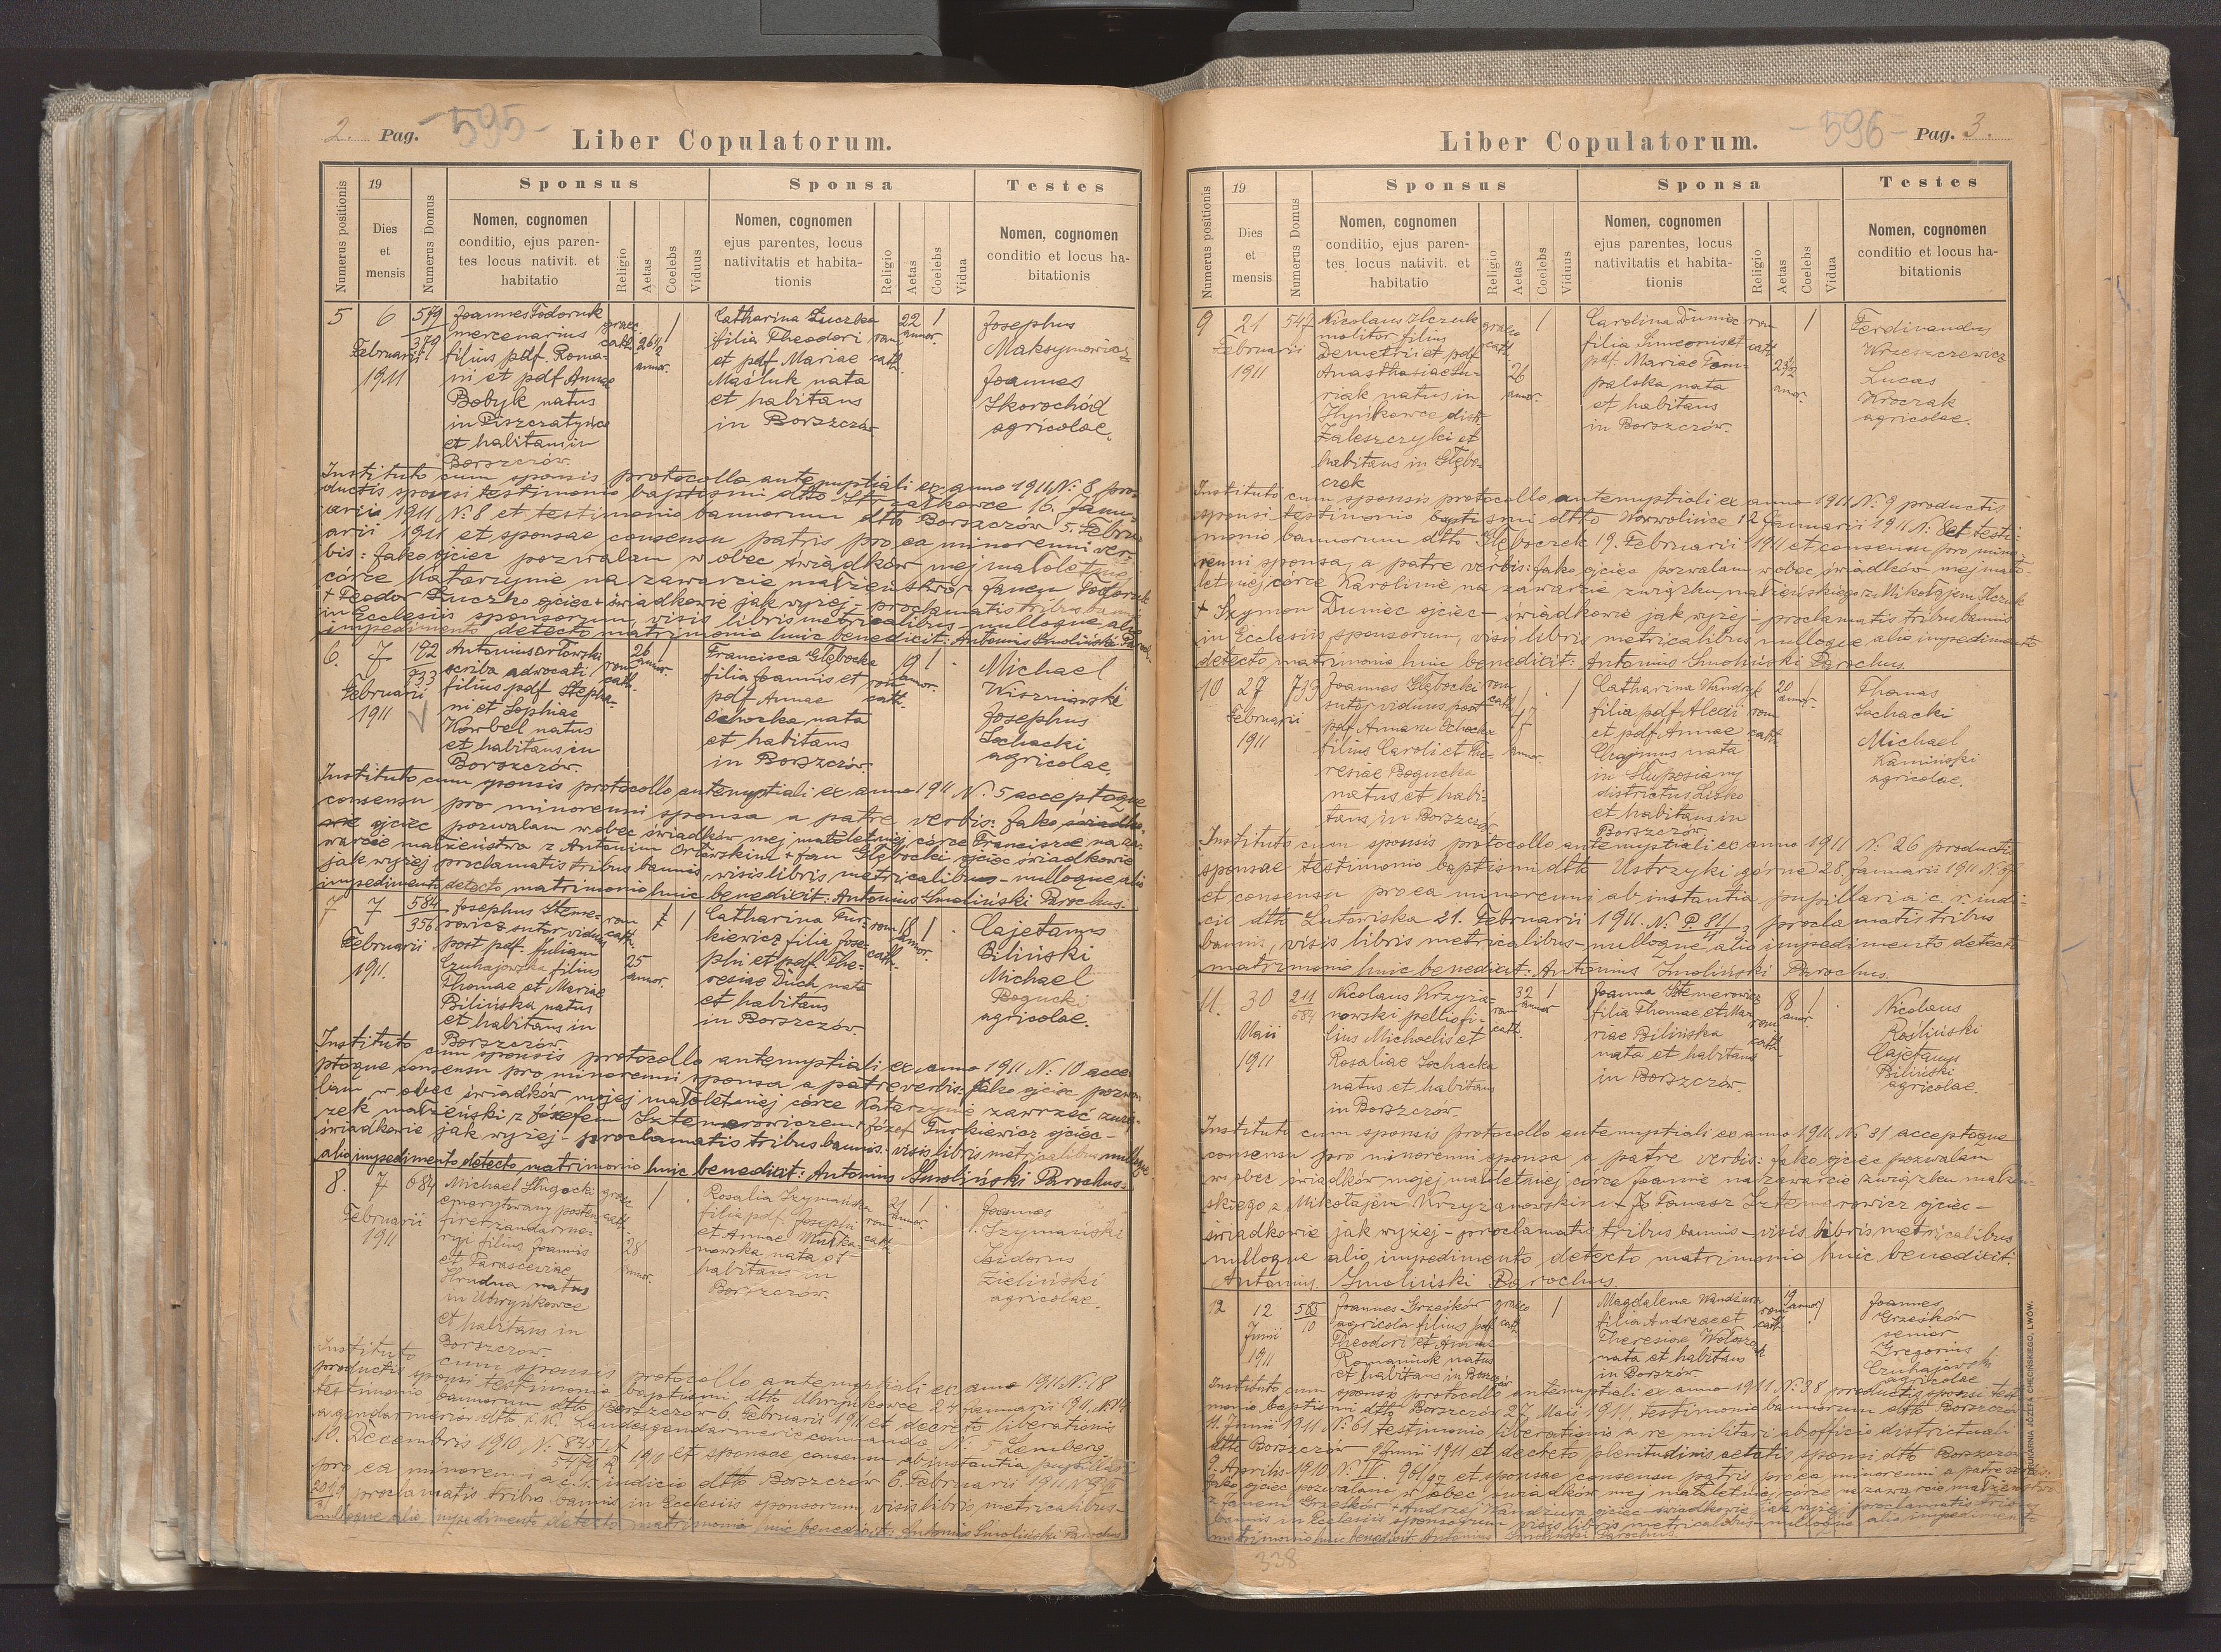 2. Pag. -595-
Liber Copulatorum.
Numerus positionis
19
Dies
et
mensis
Numerus Domus
Sponsus
Nomen, cognomen
conditio, ejus paren-
tes locus nativit. et
habitatio
Religio
Aetas
Coelebs
Viduus
Sponsa
Nomen, cognomen
ejus parentes, locus
nativitatis et habita-
tionis
Religio
Aetas
Coelebs
Vidua
Testes
Nomen, cognomen
conditio et locus ha-
bitationis
5
6
Februarii
1911
579
379
Joannes Fodoruk
mercenarius
filius pdf. Roma-
ni et pdf Annae
Bobyk natus
in Piszczatyńce
et habitans in
Borszczów.
graec
cath.
26 1/2
annor.
1
Catharina Łuczka
filia Theodori
et pdf. Mariae
Maśluk nata
et habitans
in Borszczów
rom.
cath.
22
annor.
1
Josephus
Maksymowicz
Joannes
Skorochód
agricolae.
Instituto cum sponsis protocollo antenuptiali ex anno 1911 N: 8 pro-
ductis sponsi testimonio baptismi dtto Strzałkowce 16. Janu-
arii 1911 N: 8 et testimonio bannorum dtto Borszczów 5. Febru-
arii 1911 et sponsae consensu patris pro ea minorenni ver-
bis: Jako ojciec pozwalam w obec świadków mej małoletniej
córce Katarzynie na zawarcie małżeństwa z Janem Fodoruk
+ Teodor Łuczko ojciec + świadkowie jak wyżej - proclamatis tribus bannis
in Ecclesiis sponsorum, visis libris metricalibus - nulloque alio
impedimento detecto matrimonio huic benedixit: Antonius Smoliński Paroch.
6.
7
Februarii
1911
192
733
Antonius Orłowski
scriba advocati,
filius pdf Stepha-
ni et Sophiae
Korbel natus
et habitans in
Borszczów.
rom
cath.
26
annor.
1
Francisca Głębocka
filia Joannis et
pdf Annae
Ochocka nata
et habitans
in Borszczów
rom
cath.
19
annor.
1
Michael
Wiszniowski
Josephus
Sochacki
agricolae.
Instituto cum sponsis protocollo antenuptiali ex anno 1911 N. 5 acceptoque
consensu pro minorenni sponsa a patre verbis: Jako świadko-
wie ojciec pozwalam wobec świadków mej małoletniej córce Franciszce na za-
warcie małżeństwa z Antonim Orłowskim + Jan Głębocki ojciec świadkowie
jak wyżej proclamatis tribus bannis, visis libris metricalibus - nulloque alio
impedimento detecto matrimonio huic benedixit: Antonius Smoliński Parochus.
7
7
Februarii
1911.
584
356
Josephus Steme-
rowicz sutor viduus
post pdf. Juliam
Czuhajowska filius
Thomae et Mariae
Bilińska natus
et habitans in
Borszczów.
rom
cath.
25
annor.
1
Catharina Tur-
kiewicz filia Jose-
phi et pdf. The-
resiae Duch nata
et habitans
in Borszczów.
rom
cath.
18
annor.
1
Cajetanus
Biliński
Michael
Bogucki
agricolae.
Instituto cum sponsis protocollo antenuptiali ex anno 1911 N: 10 acce-
ptoque consensu pro minorenni sponsa a patre verbis: Jako ojciec pozwa-
lam w obec świadków mojej małoletniej córce Katarzynie zawrzeć zwią-
zek małżeński z Józefem Sztemerowiczem + Józef Turkiewicz ojciec -
świadkowie jak wyżej - proclamatis tribus bannis. visis libris metricalibus nulloque
alio impedimento detecto matrimonio huic benedixit: Antonius Smoliński Parochus.
8.
7
Februarii
1911
684
Michael Sługocki
emerytowany posten-
firer żandarme-
ryi filius Joannis
et Parasceviae
Hrudna natus
in Uhryńkowce
et habitans in
Borszczów.
graec
cath.
28
annor.
1
Rosalia Szymańska
filia pdf. Josephi
et Annae
nowska nata et
habitans in
Borszczów.
rom
cath.
21
annor.
1
Joannes
Szymański
Isidorus
Zieliński
agricolae.
Instituto cum sponsis protocollo antenuptiali ex anno 1911 N: 18
productis sponsi testimonio baptismi dtto Uhryńkowce 24 Januarii 1911, N: 14
testimonio bannorum dtto Borszczów 6. Februarii 1911 et decreto liberationis
a gendarmeria dtto. k. k. Landesgendarmeriecommando N: 5 Lemberg
10. Decembris 1910 N. 1910 et sponsae consensu ab instantia pupillari
pro ea minorenni a c. r. judicio dtto Borszczów 6. Februarii 1911 N:
proclamatis tribus bannis in Ecclesiis sponsorum, visis libris metricalibus -
nulloque alio impedimento detecto matrimonio huic benedixit: Antonius Smoliński Parochus
Liber Copulatorum.
-596- Pag. 3.
Numerus positionis
19
Dies
et
mensis
Numerus Domus
Sponsus
Nomen, cognomen
conditio, ejus paren-
tes locus nativit. et
habitatio
Religio
Aetas
Coelebs
Viduus
Sponsa
Nomen, cognomen
ejus parentes, locus
nativitatis et habita-
tionis
Religio
Aetas
Coelebs
Vidua
Testes
Nomen, cognomen
conditio et locus ha-
bitationis
9
21
Februarii
1911
547
Nicolaus Ilczuk
molitor filius
Demetrii et pdf
Anasthasiae Lu-
riak natus in
Hyńkowce distr.
Zaleszczyki et
habitans in Głębo-
czok
graeco
cath.
26
annor.
1
Carolina Dumiec
filia Simeonis et
pdf. Mariae Tom-
palska nata
et habitans
in Borszczów.
rom
cath.
23 1/2
annor.
1
Ferdinandus
Wrzeszczewicz
Lucas
Kroczak
agricolae.
Instituto cum sponsis protocollo antenuptiali ex anno 1911 N: 9 productis
sponsi testimonio baptismi dtto Worwolińce 12 Januarii 1911 N: 8 et testi-
monio bannorum dtto Głęboczek 19. Februarii 1911 et consensu pro mino-
renni sponsa, a patre verbis: Jako ojciec pozwalam w obec świadków mej mało-
letniej córce Karolinie na zawarcie związku małżeńskiego z Mikołajem Ilczuk
+ Szymon Dumiec ojciec - świadkowie jak wyżej - proclamatis tribus bannis
in Ecclesiis sponsorum, visis libris metricalibus nulloque alio impedimento
detecto matrimonio huic benedixit: Antonius Smoliński Parochus.
10
27
Februarii
1911
739
Joannes Głębocki
sutor viduus post
pdf Annam Ochocka
filius Caroli et The-
resiae Bogucka
natus et habi-
tans in Borszczów
rom
cath.
47
annor.
1
Catharina Wandzyk
filia pdf Alexii
et pdf. Annae
nata
in Stuposiany
districtus Lisko
et habitans in
Borszczów.
rom
cath.
20
annor.
1
Thomas
Sochacki
Michael
Kamiński
agricolae.
Instituto cum sponsis protocollo antenuptiali ex anno 1911 N: 26 productis
sponsae testimonio baptismi dtto Ustrzyki górne 28. Januarii 1911 N: 97
et consensu pro ea minorenni ab instantia pupillari a c. r. iudi-
cio dtto Lutowiska 21. Februarii 1911. N. proclamatis tribus
bannis, visis libris metricalibus - nulloque alio impedimento detecto
matrimonio huic benedixit: Antonius Smoliński Parochus.
11.
30
Maii
1911
211
584
Nicolaus Krzyża-
nowski pellio fi-
lius Michaelis et
Rosaliae Sochacka
natus et habitans
in Borszczów.
rom
cath.
32
annor
1
Joanna Sztemerowicz
filia Thomae et Ma-
riae Bilińska
nata et habitans
in Borszczów
rom
cath.
18
annor.
1
Nicolaus
Rosliński
Cajetanus
Biliński
agricolae.
Instituto cum sponsis protocollo antenuptiali ex anno 1911, N: 31 acceptoque
consensu pro minorenni sponsa a patre verbis: Jako ojciec pozwalam
w obec świadków mojej małoletniej córce Joannie na zawarcie związku małżeń-
skiego z Mikołajem Krzyżanowskim + Tomasz Sztemerowicz ojciec -
świadkowie jak wyżej - proclamatis tribus bannis - visis libris metricalibus
nulloque alio impedimento detecto matrimonio huic benedixit:
Antonius Smoliński Parochus.
12
12
Junii
1911
585
10
Joannes Grześków
agricola filius pdf
Theodori et Annae
Romaniuk natus
et habitans in Borszczów
graeco
cath.
1
Magdalena Wandziura
filia Andreae et
Theresiae Wołoszczuk
nata et habitans
in Borszczów.
rom
cath.
19
annor.
1
Joannes
Grześków
senior
Gregorius
Czuhajowski
agricolae
Instituto cum sponsis protocollo antenuptiali ex anno 1911 N: 38 productis sponsi testi-
monio baptismi dtto Borszczów 27 Maii 1911, testimonio bannorum dtto Borszczów
11. Junii 1911 N: 61 testimonio liberationis a re militari ab officio districtuali
dtto Borszczów - 9 Junii 1911 et decreto plenitudinis aetatis sponsi dtto Borszczów
9. Aprilis 1910 N: IV. 961/97 et sponsae consensu patris pro ea minorenni a patre verbis:
Jako ojciec pozwalam w obec świadków mej małoletniej córce na zawarcie małżeństwa
z Janem Grześków + Andrzej Wandziura ojciec - świadkowie jak wyżej proclamatis tribus
bannis in Ecclesiis sponsorum visis libris metricalibus - nulloque alio impedimento
matrimonio huic benedixit Antonius Smoliński Parochus.
338
DRUKARNIA JÓZEFA CHĘCIŃSKIEGO, LWÓW.